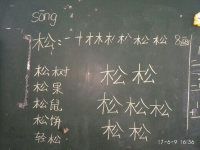 sōng
松:一十才木朳松松松 8画
松树
松果
松鼠
松饼
轻松
松松
松松松
松松
17-6-9 16:36